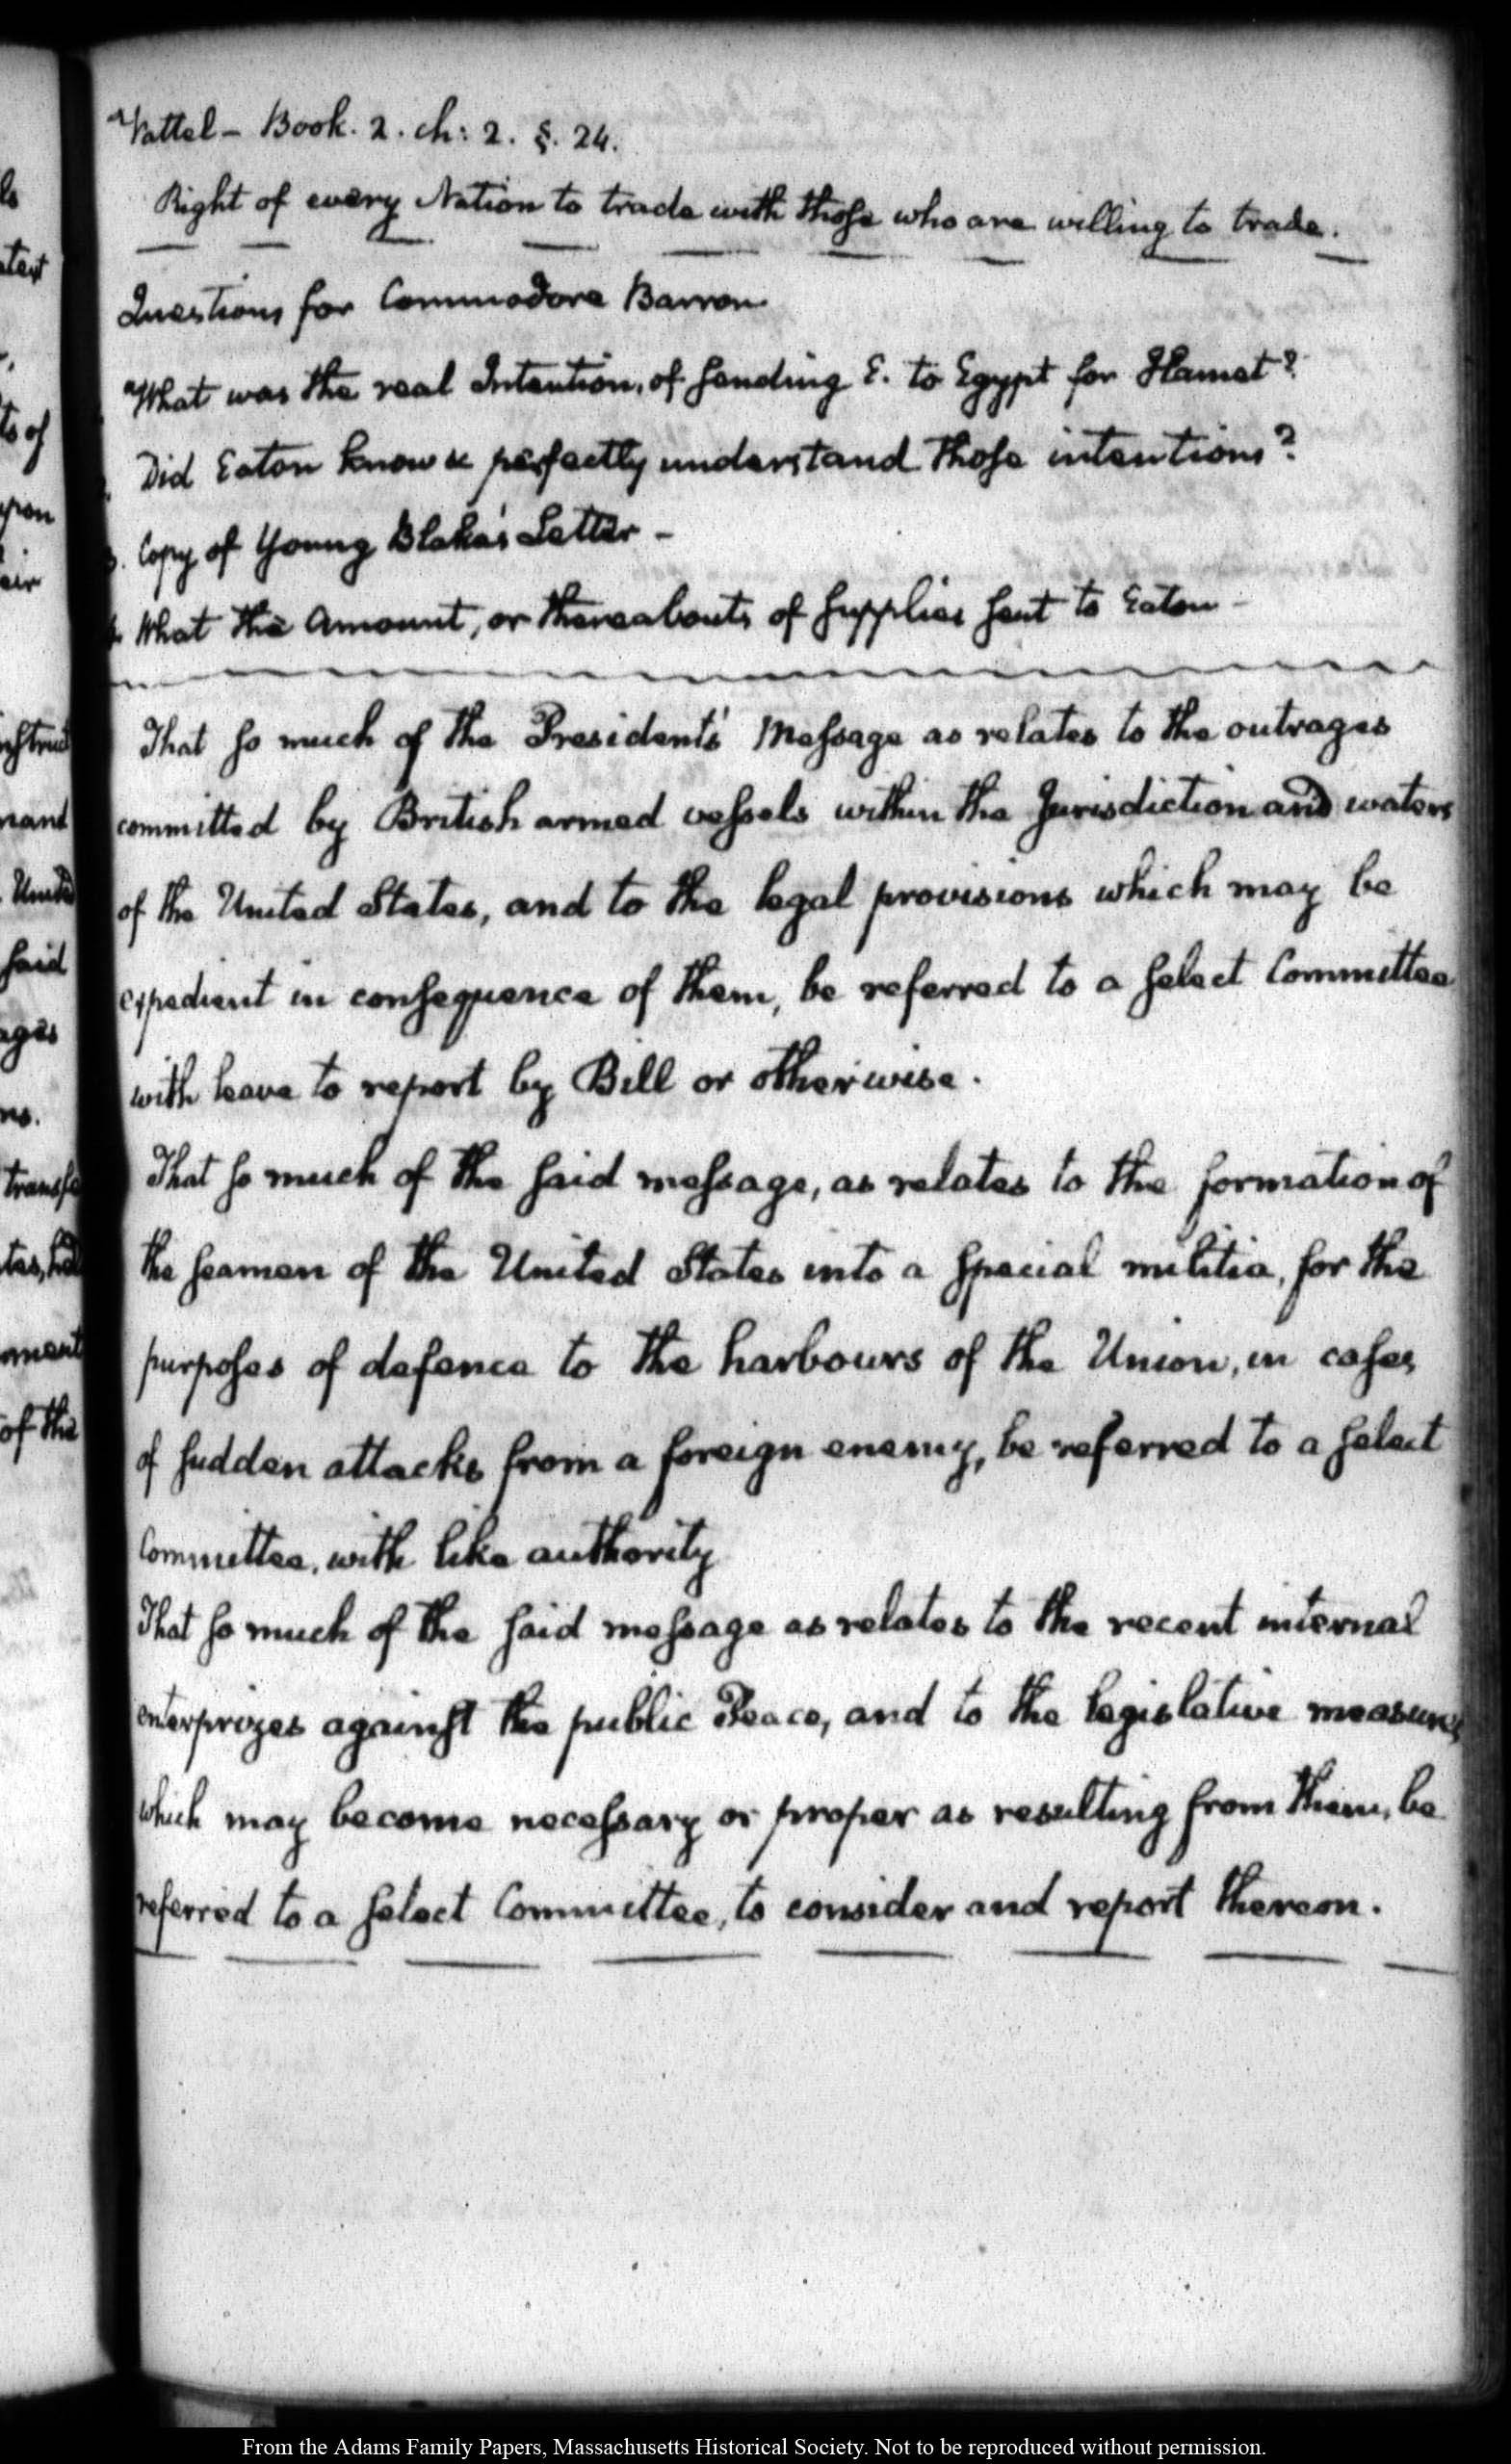 Vattel – Book. 2. ch: 2. §. 24.
Right of every Nation to trade with those who are willing to trade.
Questions for Commodore Barron
What was the real Intention, of sending E. to Egypt for Hamet?
Did Eaton know & perfectly understand those intentions?
3. Copy of Young Blake's Letter –
4. What the Amount, or thereabouts of supplies sent to Eaton –
That so much of the President's Message as relates to the outrages
committed by British armed vessels within the Jurisdiction and waters
of the United States, and to the legal provisions which may be
expedient in consequence of them, be referred to a select Committee
with leave to report by Bill or otherwise.
That so much of the said message, as relates to the formation of
the seamen of the United States into a special militia, for the
purposes of defence to the harbours of the Union, in cases
of sudden attacks from a foreign enemy, be referred to a select
Committee, with like authority
That so much of the said message as relates to the recent internal
enterprizes against the public Peace, and to the legislative measures
which may become necessary or proper as resulting from them, be
referred to a select Committee, to consider and report thereon.
From the Adams Family Papers, Massachusetts Historical Society. Not to be reproduced without permission.